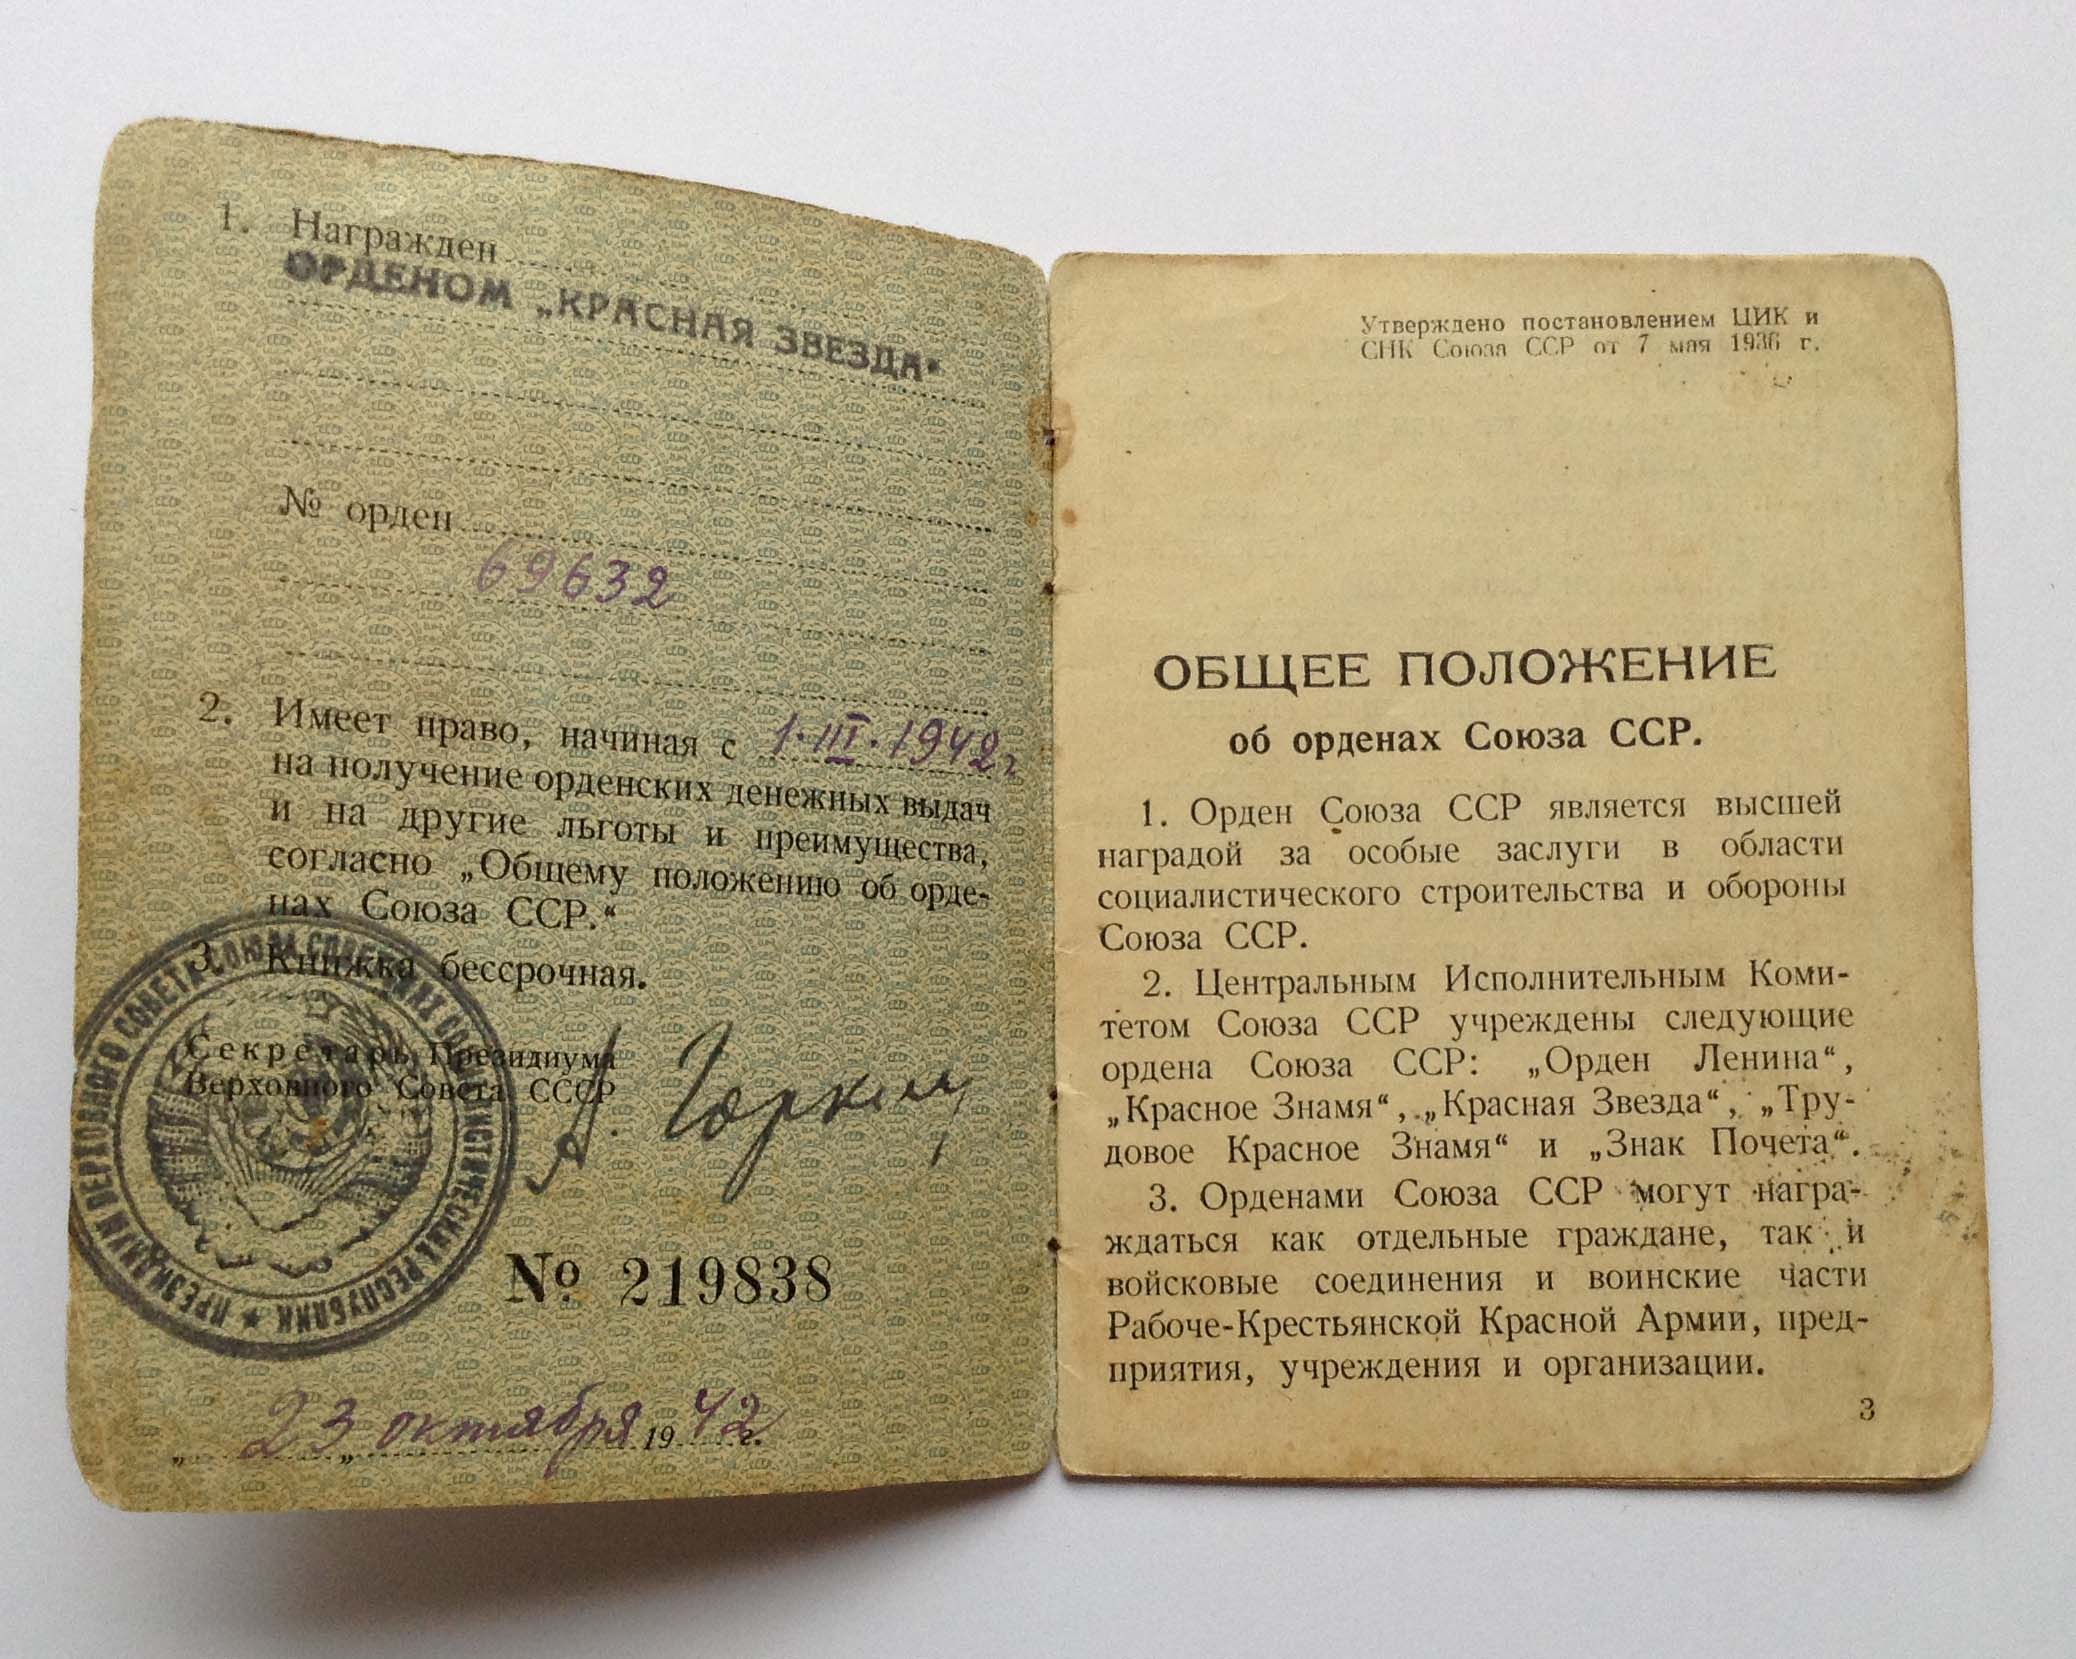 1. Награжден
ОРДЕНОМ „КРАСНАЯ ЗВЕЗДА"
№ орден
69632
2. Имеет право, начиная с 1.III.1942г
на получение орденских денежных выдач
и на другие льготы и преимущества,
согласно „Общему положению об орде-
нах Союза ССР.“
3. Книжка бессрочная.
Секретарь Президиума
Верховного Совета СССР
А. Горкин
ПРЕЗИДИУМ ВЕРХОВНОГО СОВЕТА СОЮЗА СОВЕТСКИХ СОЦИАЛИСТИЧЕСКИХ РЕСПУБЛИК
№ 219838
„23„ октября 1942 г.
Утверждено постановлением ЦИК и
СНК Союза ССР от 7 мая 1936 г.
ОБЩЕЕ ПОЛОЖЕНИЕ
об орденах Союза ССР.
1. Орден Союза ССР является высшей
наградой за особые заслуги в области
социалистического строительства и обороны
Союза ССР.
2. Центральным Исполнительным Коми-
тетом Союза ССР учреждены следующие
ордена Союза ССР: „Орден Ленина“,
„Красное Знамя“, „Красная Звезда“, „Тру-
довое Красное Знамя“ и „Знак Почета“.
3. Орденами Союза ССР могут награ-
ждаться как отдельные граждане, так и
войсковые соединения и воинские части
Рабоче-Крестьянской Красной Армии, пред-
приятия, учреждения и организации.
3